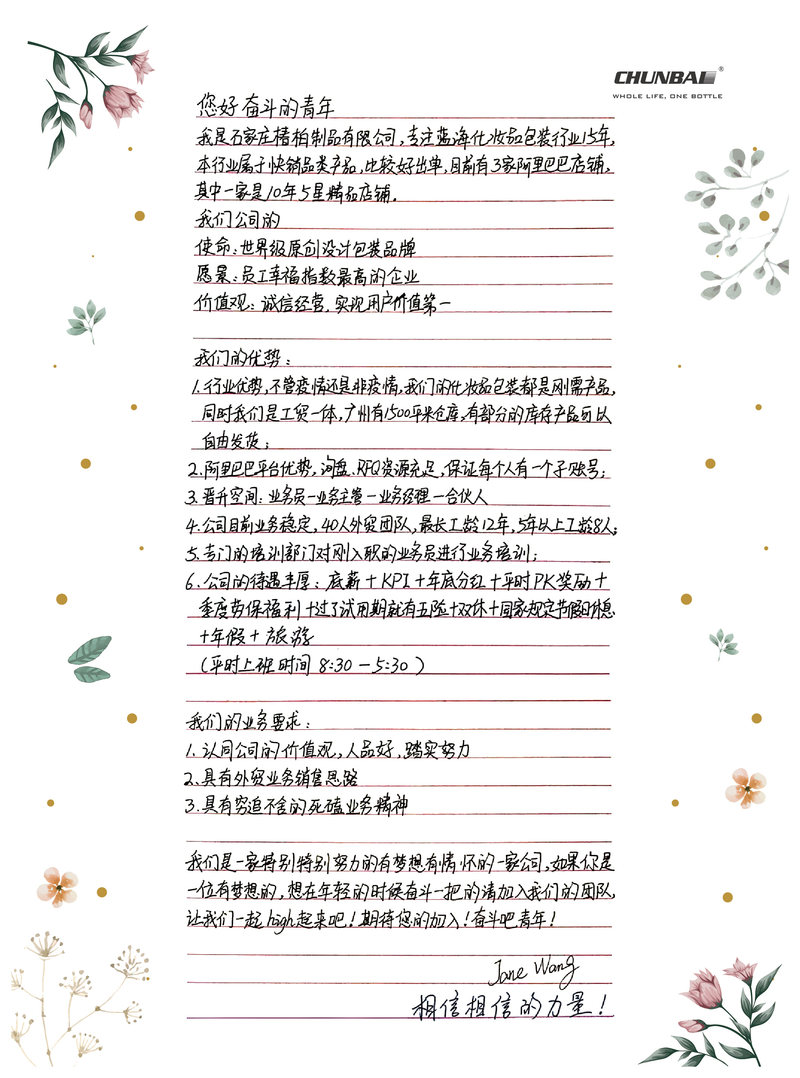 CHUNBAI®
WHOLE LIFE, ONE BOTTLE
您好奋斗的青年
我是石家庄椿柏制品有限公司,专注蓝海化妆品包装行业15年,
本行业属于快销品类产品,比较好出单,目前有3家阿里巴巴店铺,
其中一家是10年5星精品店铺.
我们公司的
使命:世界级原创设计包装品牌
愿景:员工幸福指数最高的企业
价值观:诚信经营,实现用户价值第一
我们的优势:
1.行业优势,不管疫情还是非疫情,我们的化妆品包装都是刚需产品,
同时我们是工贸一体,广州有1500平米仓库,有部分的库存产品可以
自由发货;
2.阿里巴巴平台优势,询盘、RFQ资源充足,保证每个人有一个子账号;
3.晋升空间:业务员—业务主管—业务经理—合伙人
4.公司目前业务稳定,40人外贸团队,最长工龄12年,5年以上工龄8人;
5.专门的培训部门对刚入职的业务员进行业务培训;
6.公司的待遇丰厚:底薪+KPI+年底分红+平时PK奖励+
季度劳保福利+过了试用期就有五险+双休+国家规定节假日休息
+年假+旅游
(平时上班时间 8:30—5:30)
我们的业务要求:
1.认同公司的价值观,人品好,踏实努力
2.具有外贸业务销售思路
3.具有穷追不舍的死磕业务精神
我们是一家特别特别努力的有梦想有情怀的一家公司,如果你是
一位有梦想的,想在年轻的时候奋斗一把的请加入我们的团队,
让我们一起high起来吧!期待您的加入!奋斗吧青年!
Jane Wang
相信相信的力量!